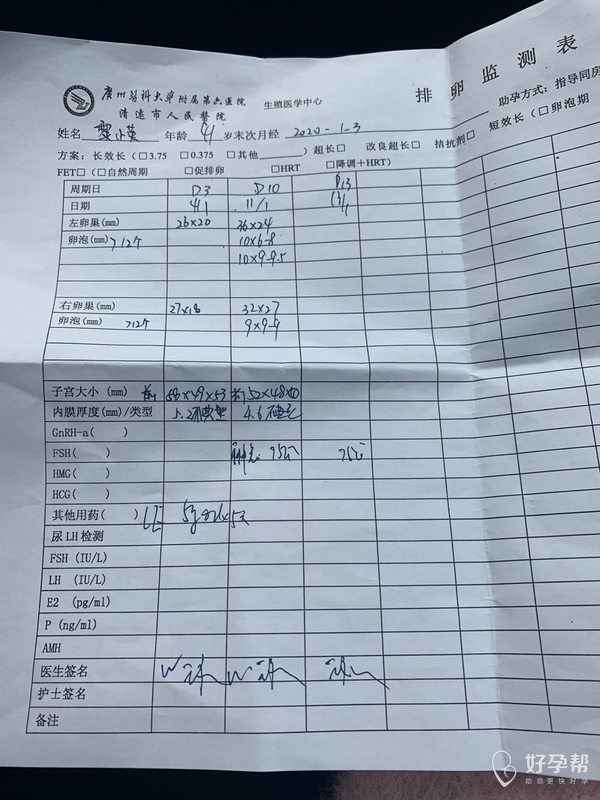 排卵监测表
广州医科大学附属第六医院 生殖医学中心
清远市人民医院
助孕方式：指导同房
姓名 年龄 41 岁末次月经 2020-1-3
方案：长效长（□3.75 □0.375 □其他____）超长□ 改良超长□ 拮抗剂□ 短效长（□卵泡期
FET□（□自然周期 □促排卵 □HRT □降调＋HRT）
周期日 D3 D10 D13
日期 4/1 11/1 13/1
左卵巢(mm) 26×20 36×24
卵泡(mm) >12个 10×6-8
10×9-9.5
右卵巢(mm) 27×18 32×27
卵泡(mm) >12个 9×9-9
子宫大小 (mm) 前 58×49×53 前 52×48×
内膜厚度(mm)/类型
GnRH-a( )
FSH( ) 75 75
HMG( )
HCG( )
其他用药( ) LE
尿LH检测
FSH (IU/L)
LH (IU/L)
E2 (pg/ml)
P (ng/ml)
AMH
医生签名
护士签名
备注
好孕帮
助您更快好孕